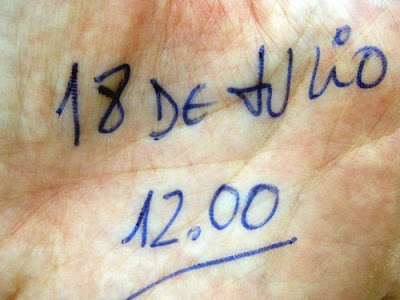 18 DE JULIO
12.00